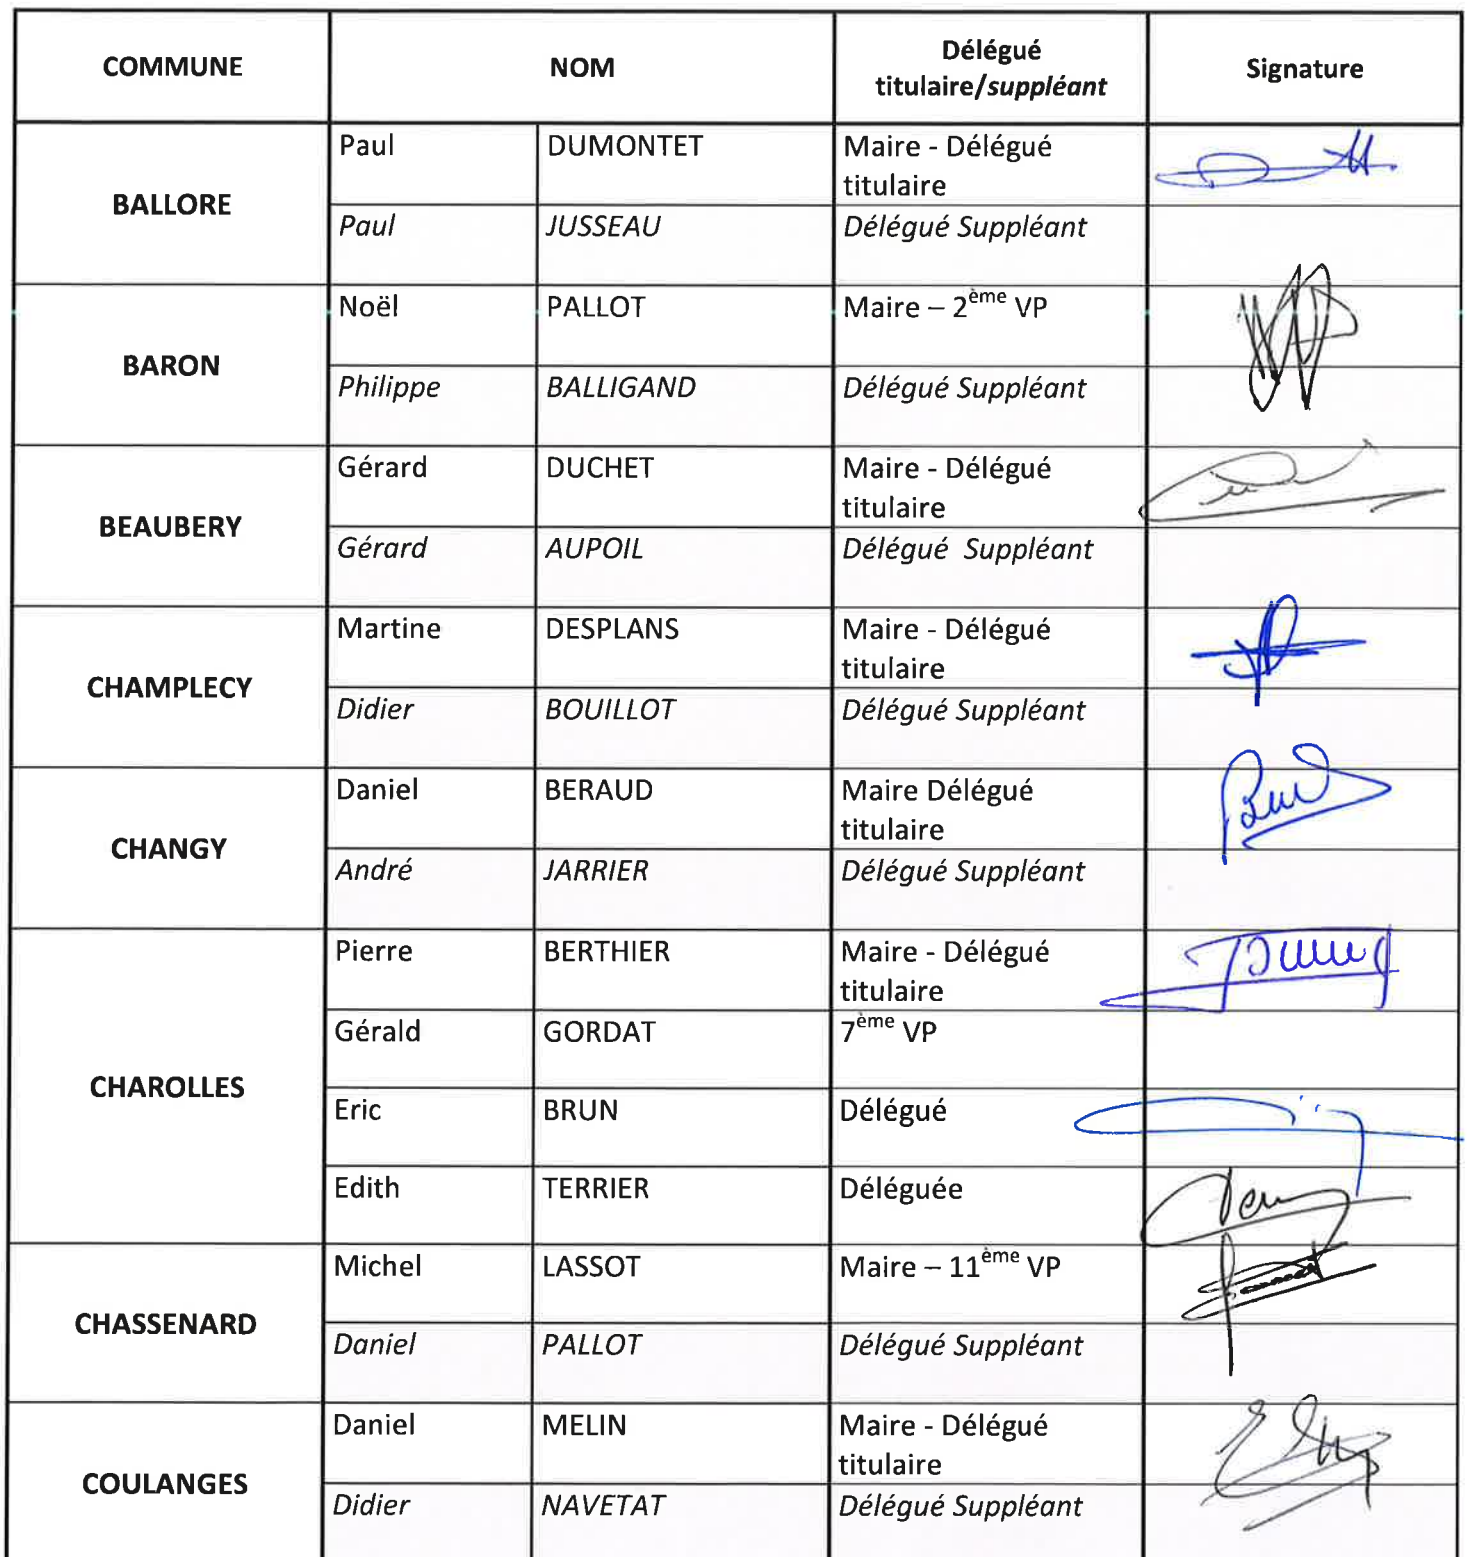 COMMUNE NOM Délégué
titulaire/suppléant Signature
BALLORE
Paul DUMONTET Maire - Délégué
titulaire
Paul JUSSEAU Délégué Suppléant
BARON
Noël PALLOT Maire – 2ème VP
Philippe BALLIGAND Délégué Suppléant
BEAUBERY
Gérard DUCHET Maire - Délégué
titulaire
Gérard AUPOIL Délégué Suppléant
CHAMPLECY
Martine DESPLANS Maire - Délégué
titulaire
Didier BOUILLOT Délégué Suppléant
CHANGY
Daniel BERAUD Maire Délégué
titulaire
André JARRIER Délégué Suppléant
CHAROLLES
Pierre BERTHIER Maire - Délégué
titulaire
Gérald GORDAT 7ème VP
Eric BRUN Délégué
Edith TERRIER Déléguée
CHASSENARD
Michel LASSOT Maire – 11ème VP
Daniel PALLOT Délégué Suppléant
COULANGES
Daniel MELIN Maire - Délégué
titulaire
Didier NAVETAT Délégué Suppléant